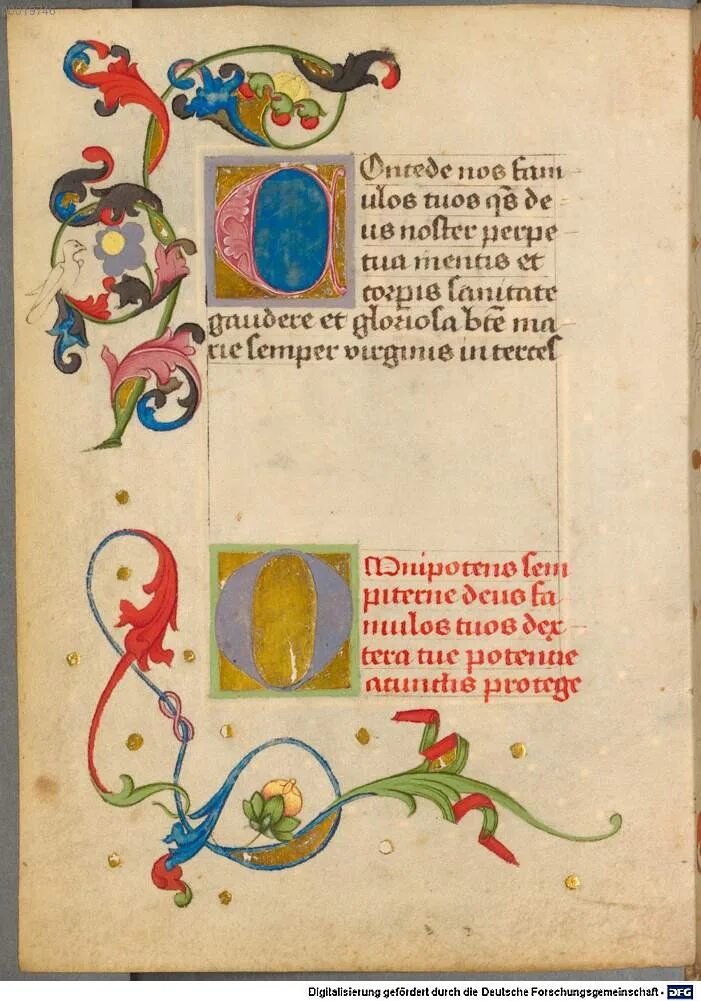 00019746
Concede nos fam
ulos tuos qs̄ de
us noster perpe
tua mentis et
corp̄is sanitate
gaudere et gloriosa bt̄e ma
rie semper virginis in terces
Omnipotens sem
piterne deus fa
mulos tuos dex
tera tue potencie
a cunctis protege
Digitalisierung gefördert durch die Deutsche Forschungsgemeinschaft - DFG